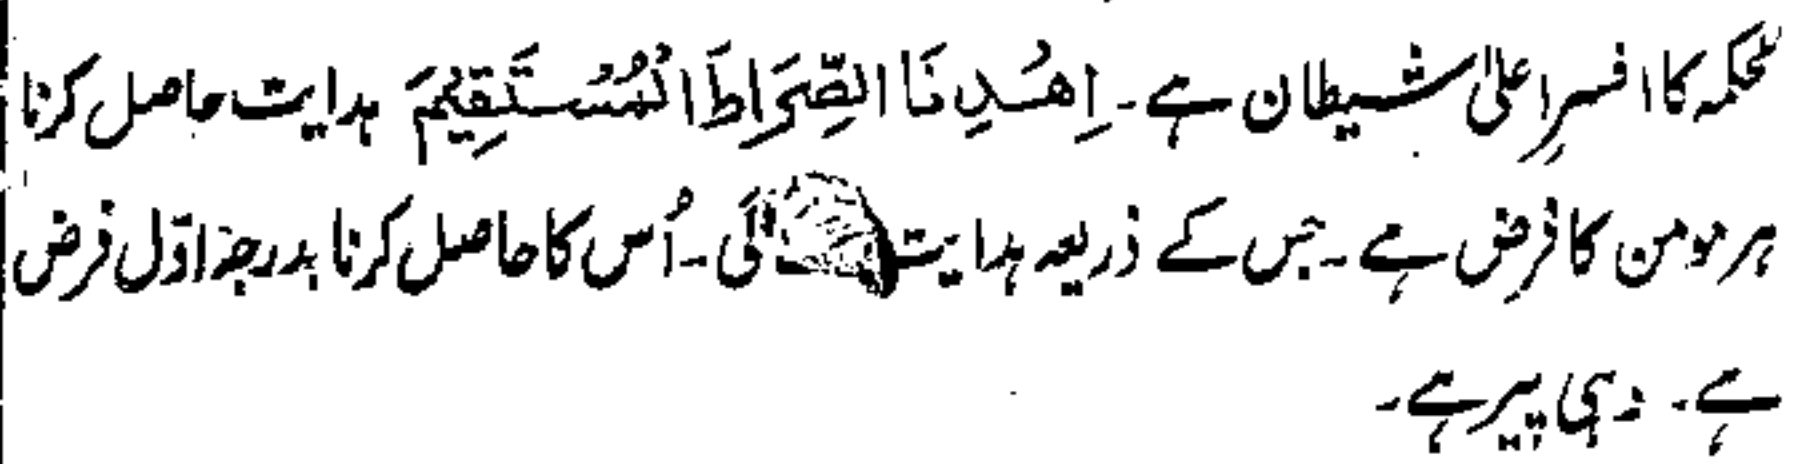 محکمہ کا افسرِ اعلیٰ شیطان ہے۔ اِهْدِنَا الصِّرَاطَ الْمُسْتَقِيْمَ ہدایت حاصل کرنا
ہر مومن کا فرض ہے۔ جس کے ذریعہ ہدایت گی۔ اُس کا حاصل کرنا بدرجۂ اوّل فرض
ہے۔ وہی پیر ہے۔